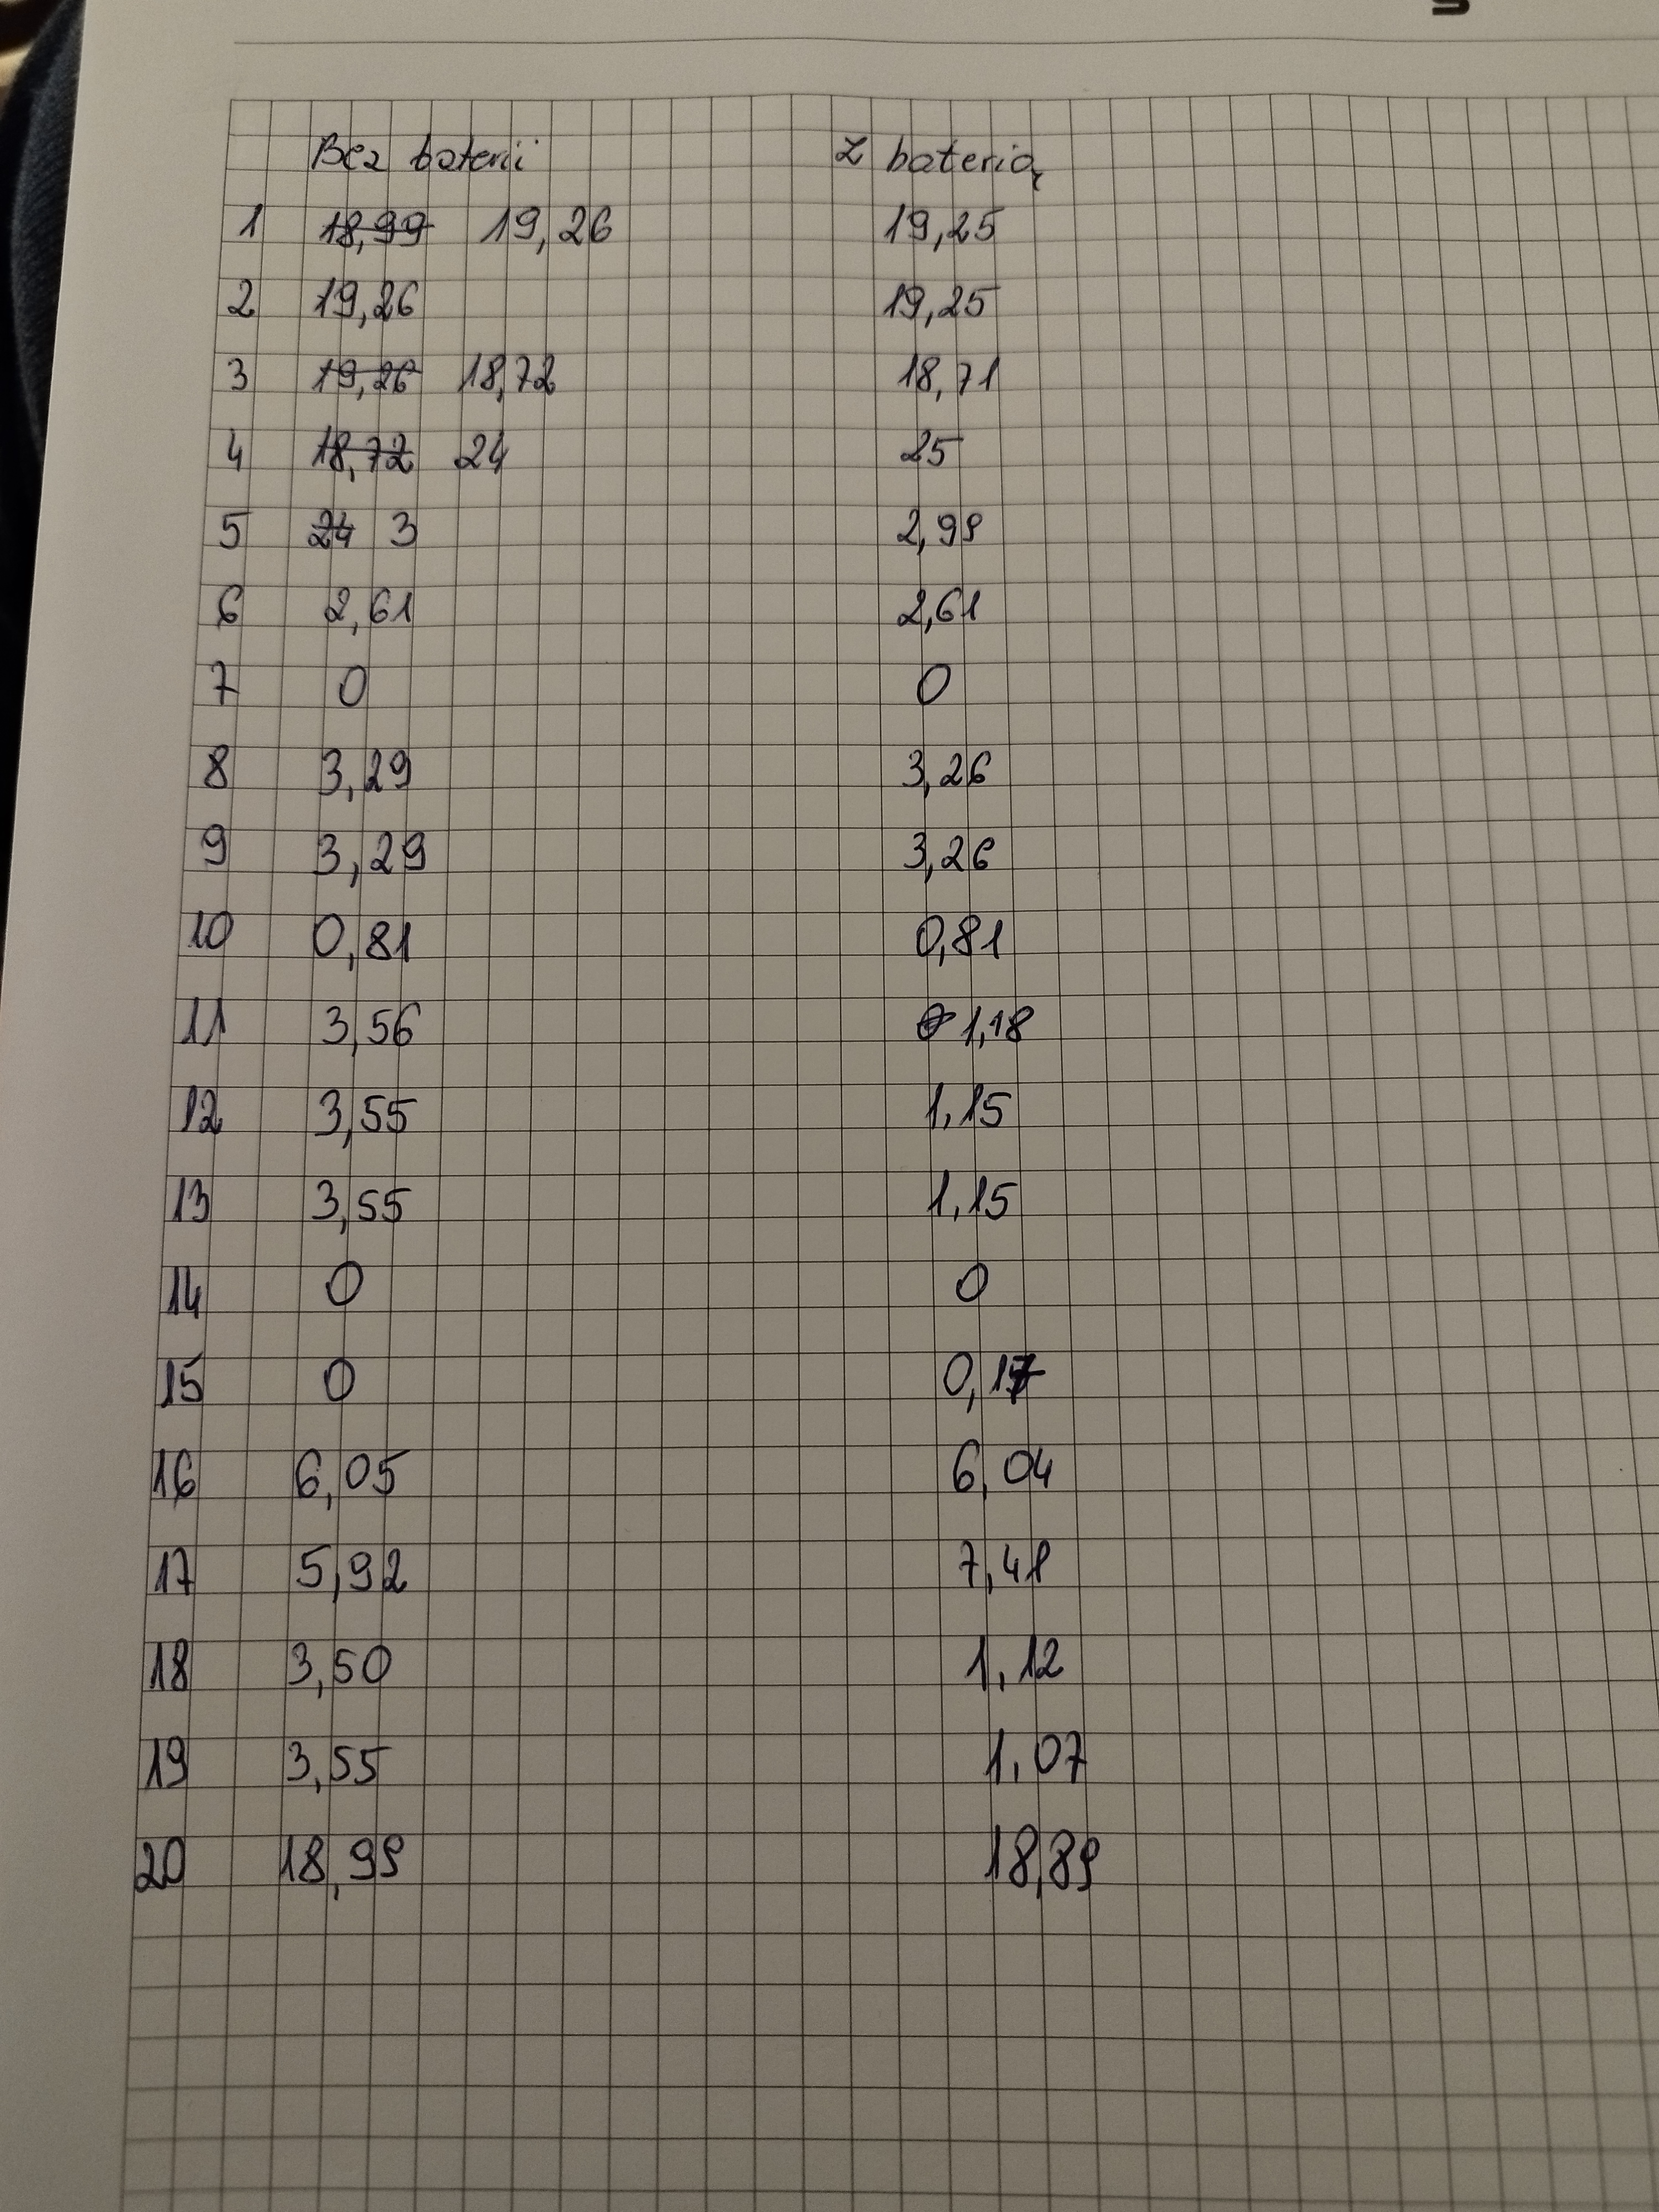 Bez baterii Z baterią
1 18,99 19,26 19,25
2 19,26 19,25
3 19,26 18,72 18,71
4 18,72 24 25
5 24 3 2,99
6 2,61 2,61
7 0 0
8 3,29 3,26
9 3,29 3,26
10 0,81 0,81
11 3,56 1,18
12 3,55 1,15
13 3,55 1,15
14 0 0
15 0
16 6,05 6,04
17 5,92 7,41
18 3,50 1,12
19 3,55 1,07
20 18,99 18,89